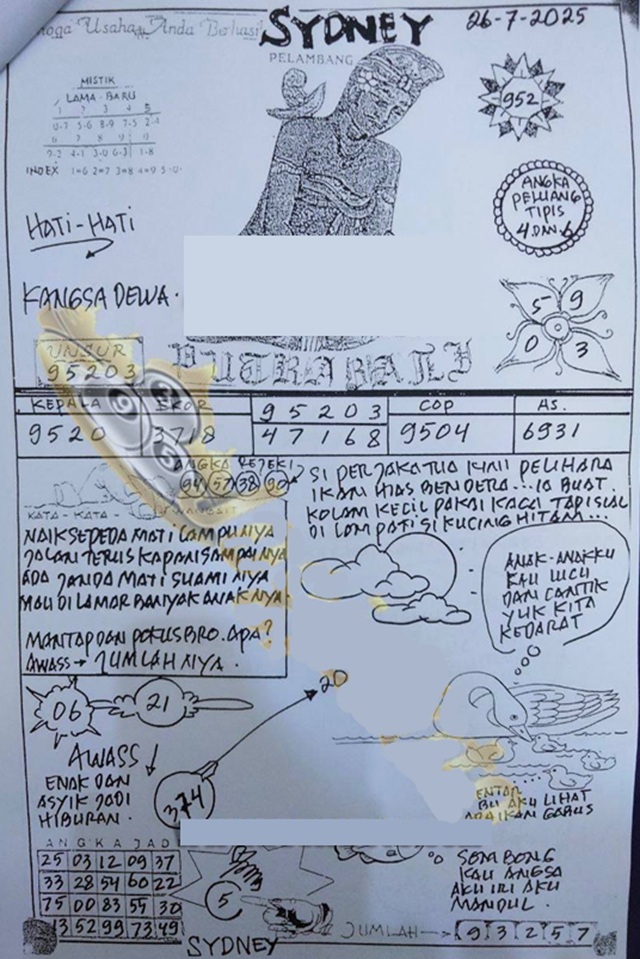 Usaha Anda Berhasil
SYDNEY
26-7-2025
PELAMBANG
MISTIK
LAMA - BARU
1 2 3 4 5
0-7 5-6 8-9 7-5 2-4
6 7 8 9 0
9-2 4-1 3-0 6-3 1-8
INDEX 1=6 2=7 3=8 4=9 5=0
952
ANGKA
PELUANG
TIPIS
4 DAN 6
HATI-HATI
KANGSA DEWA.
5 9
0 3
UNSUR
95203
PUTRA
KEPALA EKOR 95203 COP AS.
9520 3718 47168 9504 6931
ANGKA REJEKI
94 57 38 90
KATA - KATA -
NAIK SEPEDA MATI LAMPUNYA
JALAN TERUS KAPAN SAMPAINYA
ADA JANDA MATI SUAMI NYA
MAU DI LAMAR BANYAK ANAK NYA.
MANTAP DAN POKUS BRO. APA?
AWASS → JUMLAH NYA.
SI PERJAKA TUA KINI PELIHARA
IKAN HIAS BENDERA... IA BUAT
KOLAM KECIL PAKAI KACA TAPI SIAL
DI LOMPATI SI KUCING HITAM...
ANAK-ANAKKU
KAU LUCU
DAN CANTIK
YUK KITA
KEDARAT
06
21
20
AWASS
ENAK DAN
ASYIK JADI
HIBURAN.
374
ENTAR
BU AKU LIHAT
ADA IKAN GABUS
ANGKA JADI
25 03 12 09 37
33 28 54 60 22
75 00 83 55 30
13 52 99 73 49
5
SOMBONG
KAU ANGSA
AKU INI AKU
MANDUL.
SYDNEY
JUMLAH → 9 3 2 5 7